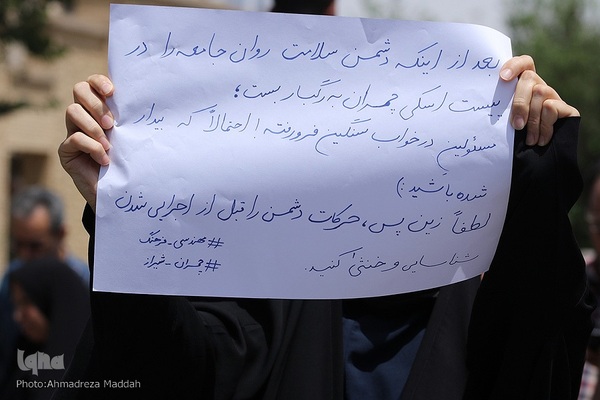 بعد از اینکه دشمن سلامت روان جامعه را در
پیست اسکی چمران به رگبار بست؛
مسئولین در خواب سنگین فرورفته! احتمالاً که بیدار
شده باشید:)
لطفاً زین پس، حرکات دشمن را قبل از اجرایی شدن
شناسایی و خنثی کنید.
#مهندسی_فرهنگ
#چمران_شیراز
iqna
Photo:Ahmadreza Maddah